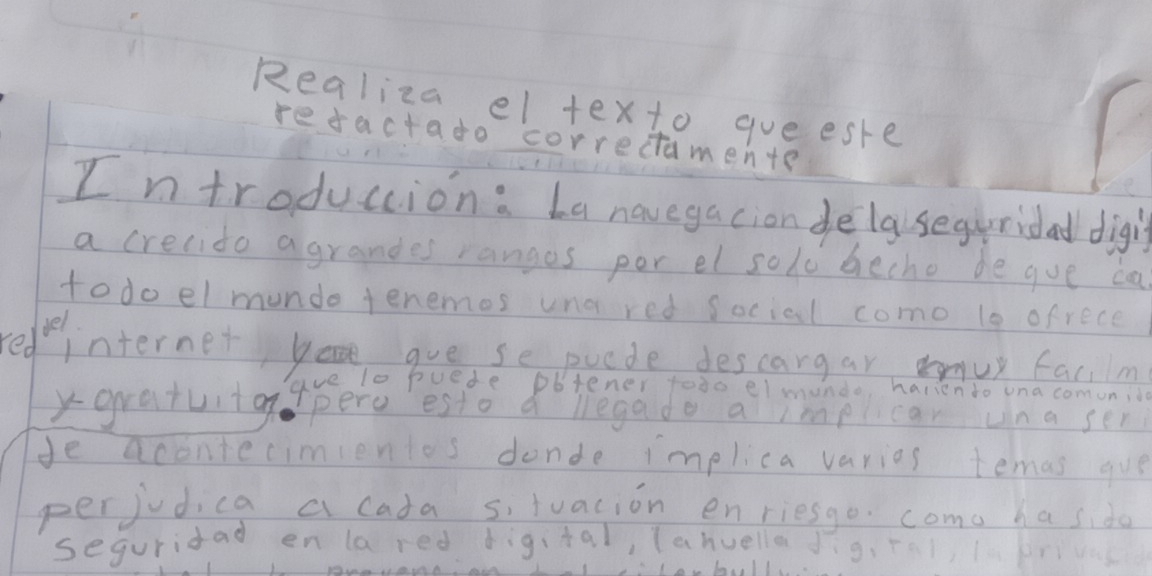 Realiza el texto que este
redactado correctamente
Introducción: La navegacion de la seguridad digit
a crecido a grandes rangos por el solo hecho de que ca
todo el mundo tenemos una red social como lo ofrece l
red del internet, que se puede descargar muy facilm
que lo puede obtener todo el mundo, hariendo una comunida
y gratuita. pero esto a llegado a implicar una seri
de acontecimientos donde implica varios temas que
perjudica a cada situación en riesgo. como ha sido
seguridad en la red digital, la huella digital, la privacid
prevencion del ciberbully